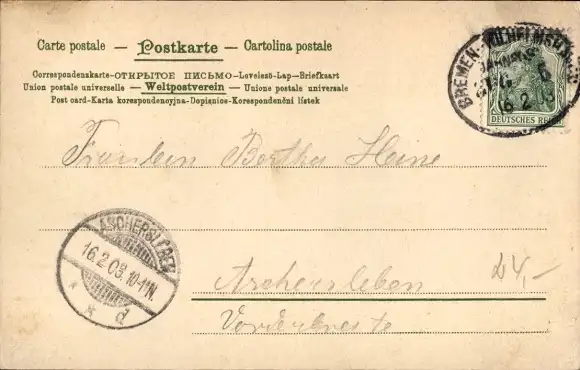 Carte postale — Postkarte — Cartolina postale
Correspondenskarte-ОТКРЫТОЕ ПИСЬМО-Levelező-Lap-Briefkaart
Union postale universelle — Weltpostverein — Unione postale universale
Post card-Karta korespondencyjna-Dopisnice-Korespondenční lístek
BREMEN-WILHELMSHAVEN
BAHNPOST
ZUG 6
16 2
DEUTSCHES REICH
Fräulein Bertha Heine
ASCHERSLEBEN
16.2.03.10-11N.
* * d
Aschersleben
24,-